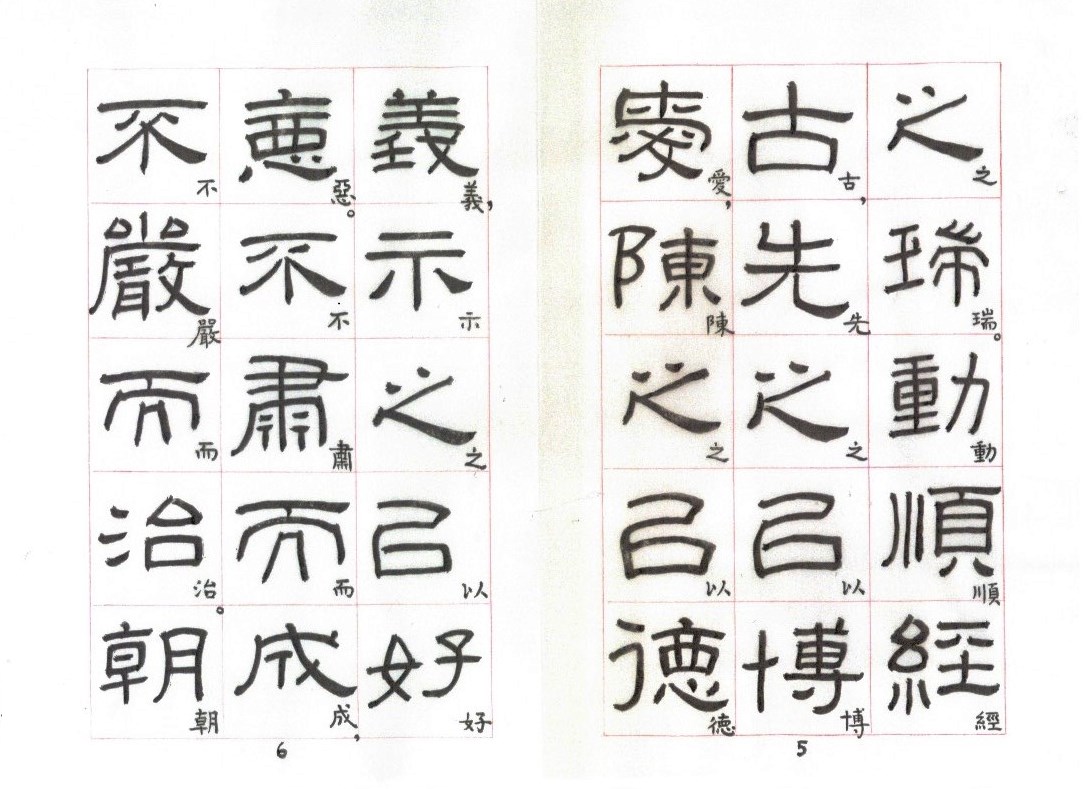 之瑞動順經
之瑞。動順經
古先之㠯博
古,先之以博
愛陳之㠯德
愛,陳之以德
5
義示之㠯好
義,示之以好
惡不肅而成
惡。不肅而成,
不嚴而治朝
不嚴而治。朝
6